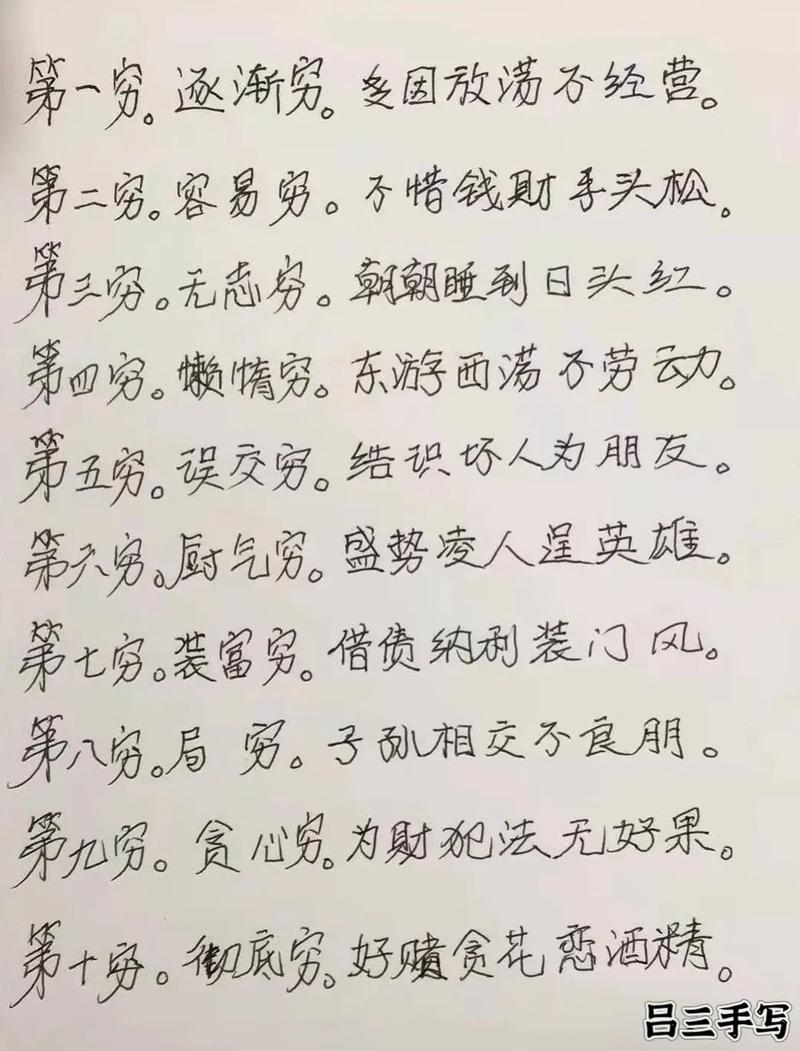 第一穷。逐渐穷。多因放荡不经营。
第二穷。容易穷。不惜钱财手头松。
第三穷。无志穷。朝朝睡到日头红。
第四穷。懒惰穷。东游西荡不劳动。
第五穷。误交穷。结识坏人为朋友。
第六穷。厨气穷。盛势凌人逞英雄。
第七穷。装富穷。借债纳利装门风。
第八穷。局 穷。子孙相交不良朋。
第九穷。贪心穷。为财犯法无好果。
第十穷。彻底穷。好赌贪花恋酒精。
吕三手写